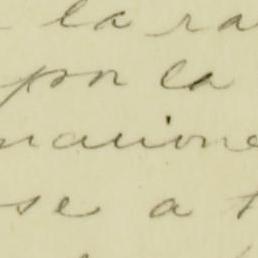 la ra
por la
nacione
se a